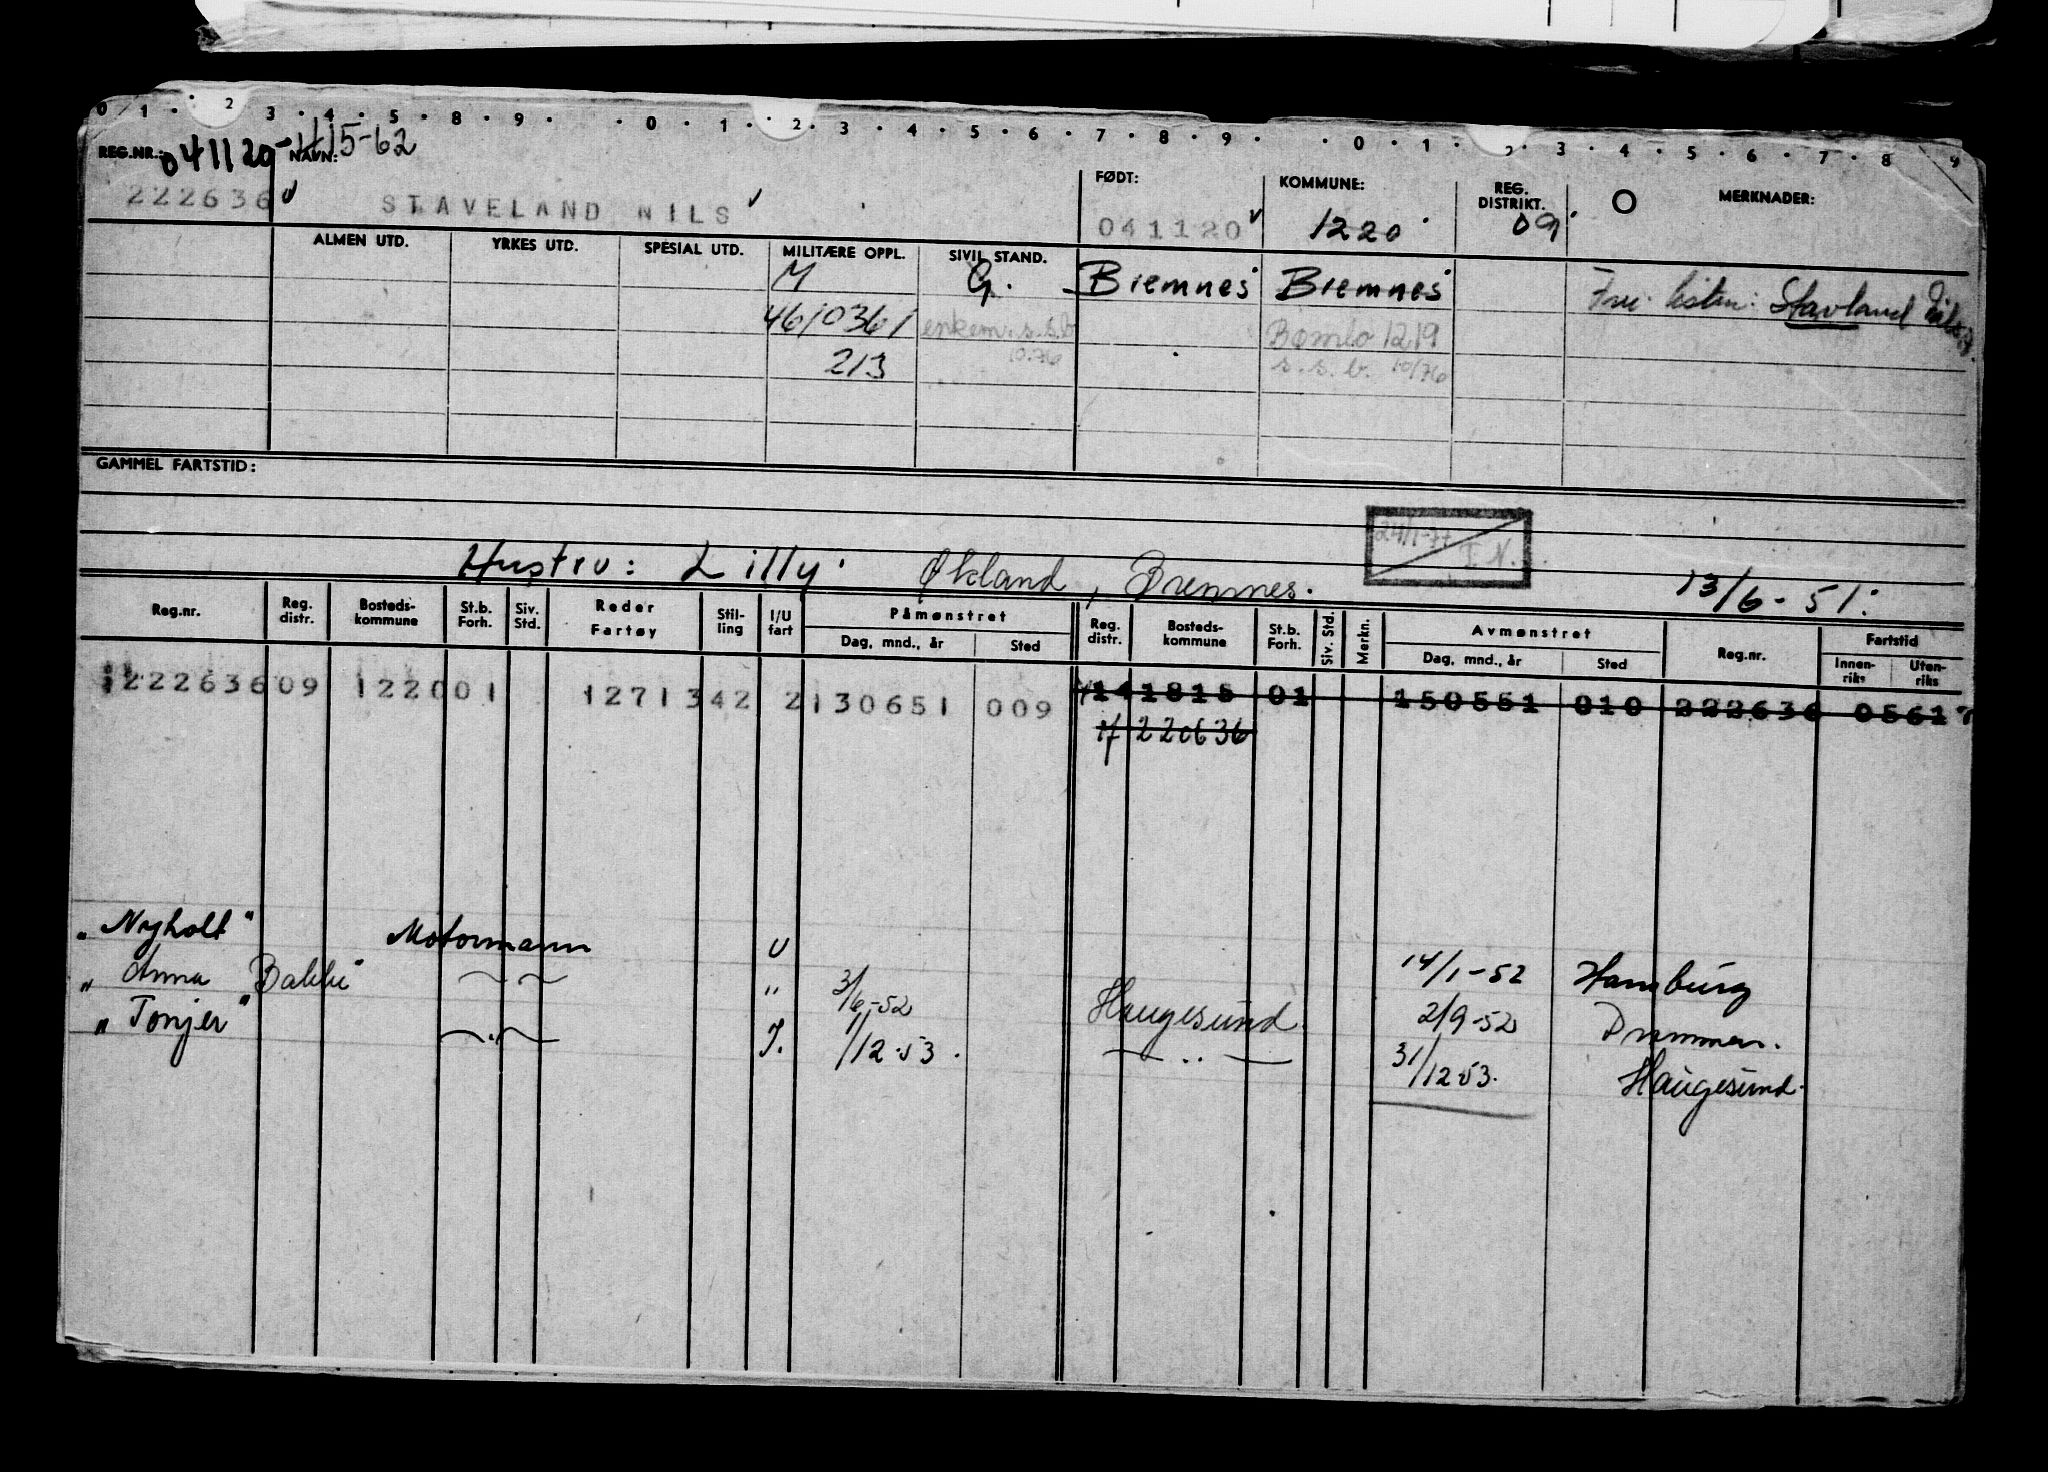 0 1 2 3 4 5 8 9 0 1 2 3 4 5 6 7 8 9 0 1 2 3 4 5 6 7 8 9
REG.NR.: 041120-4115-62 NAVN: FØDT: KOMMUNE: REG. DISTRIKT. MERKNADER:
222636 STAVELAND NILS 041120 1220 09
ALMEN UTD. YRKES UTD. SPESIAL UTD. MILITÆRE OPPL. SIVIL STAND.
M G. Bremnes Bremnes listen: Stavland
46/0361 enkem. s.s.b. Bømlo 1219
213 10.76 s.s.b. 10/76
GAMMEL FARTSTID:
24/1-77 I N.
Hustru: Lilly Økland, Bremnes. 13/6-51.
Reg.nr. Reg. distr. Bosteds-kommune St.b. Forh. Siv. Std. Reder Fartøy Stil-ling I/U fart Påmønstret Reg. distr. Bosteds-kommune St.b. Forh. Siv. Std. Merkn. Avmønstret Reg.nr. Fartstid
Dag, mnd., år Sted Dag, mnd., år Sted Innen-riks Uten-riks
222636 09 1220 01 1271342 2 130651 009 141815 01 150551 010 222636 05617
17 220636
"Nyholt" Motormann U 14/1-52 Hamburg
"Anna Bakke" — " — " 3/6-52 Haugesund 2/9-52 Drammen.
"Tonjer" — " — I. 1/12-53. — " — 31/12-53. Haugesund.